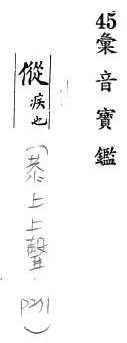 45彙音寶鑑
傱 疾也
(恭上上聲 )